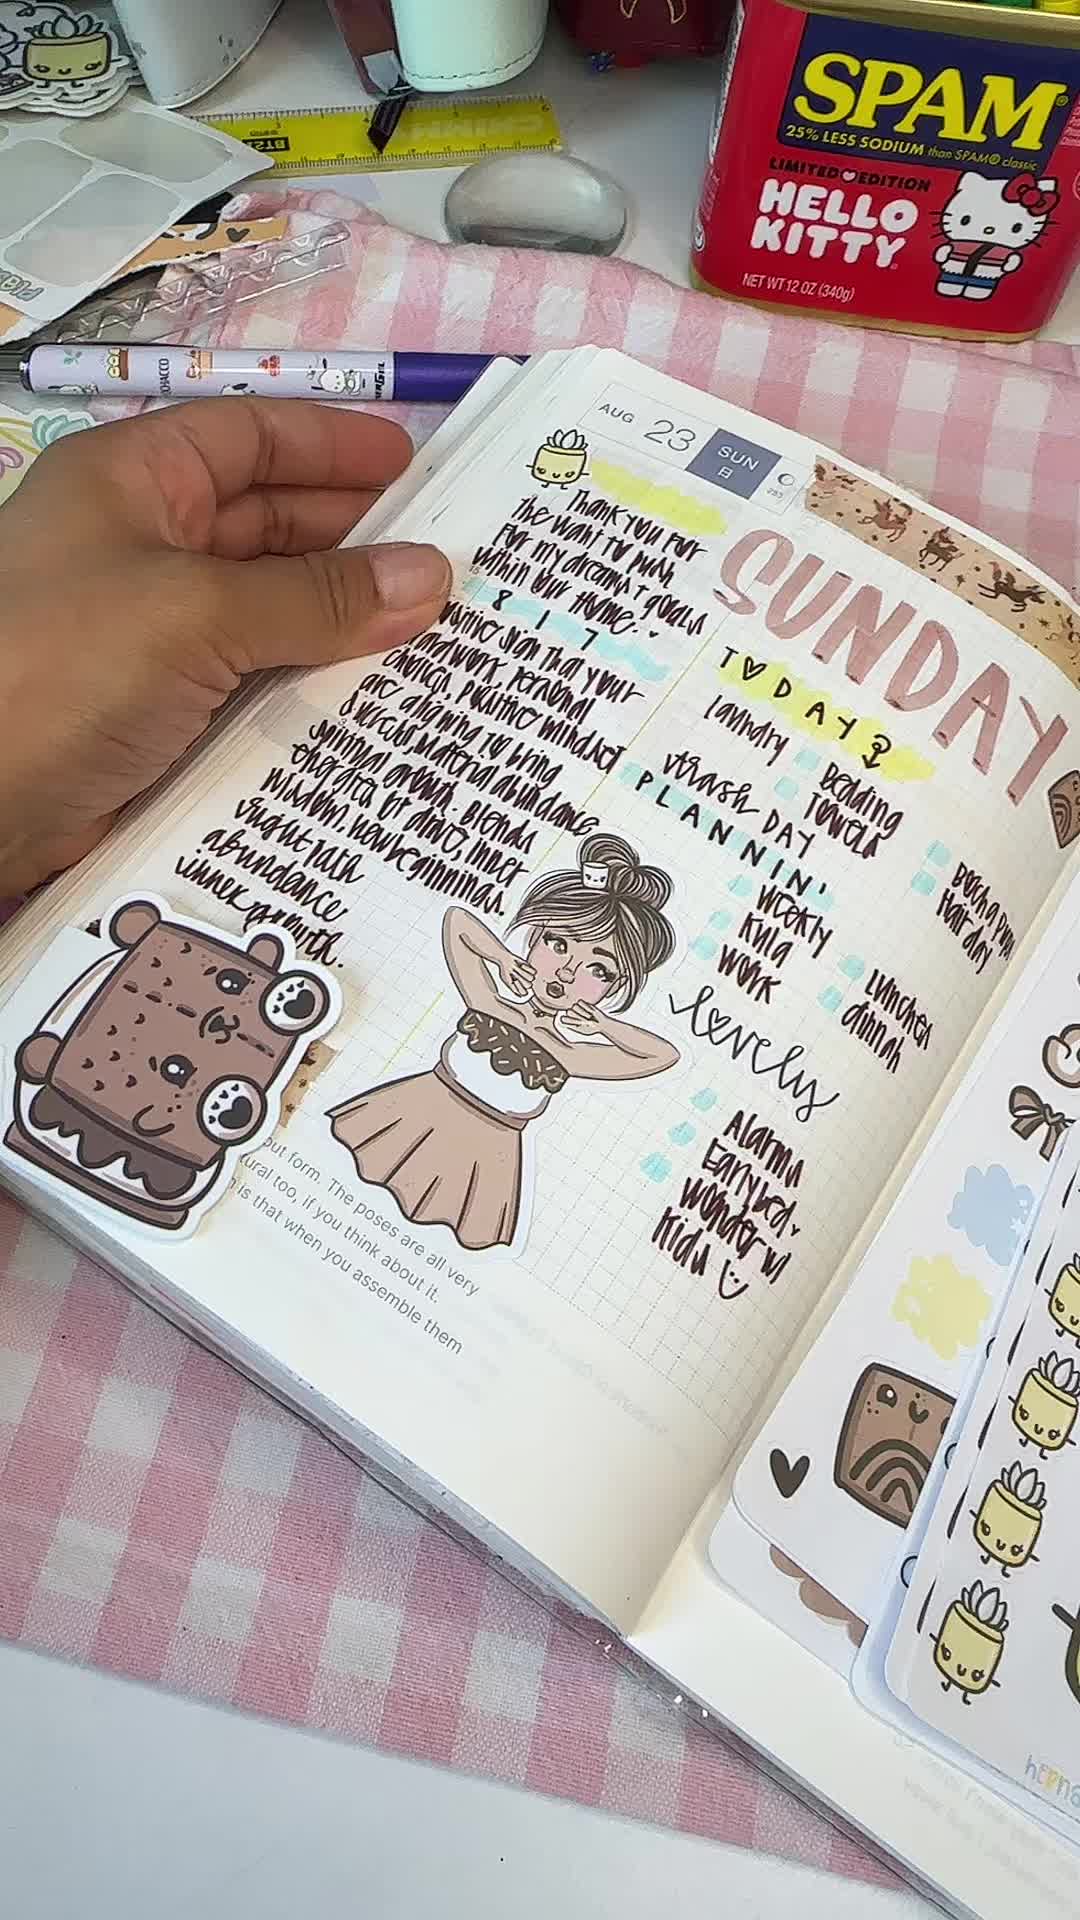 SPAM®
25% LESS SODIUM than SPAM® classic
LIMITED EDITION
HELLO
KITTY
NET WT 12 OZ (340g)
AUG 23 SUN
日
SUNDAY
Thank you for
the want to push
for my dreams + goals
within our home.
8 1 7
positive sign that your
hardwork, personal
choices, positive mindset
are aligning to bring
success, material abundance
spiritual growth. Blends
energies of drive, inner
wisdom, new beginnings.
right path
abundance
inner growth.
TODAY
laundry
Bedding
Towels
trash DAY
PLANNIN'
Weekly
Kula
Work
Hair day
Lunches
dinnah
lovely
Alarms
Early bed.
Wonder w/
Kids
put form. The poses are all very
tural too, if you think about it.
is that when you assemble them